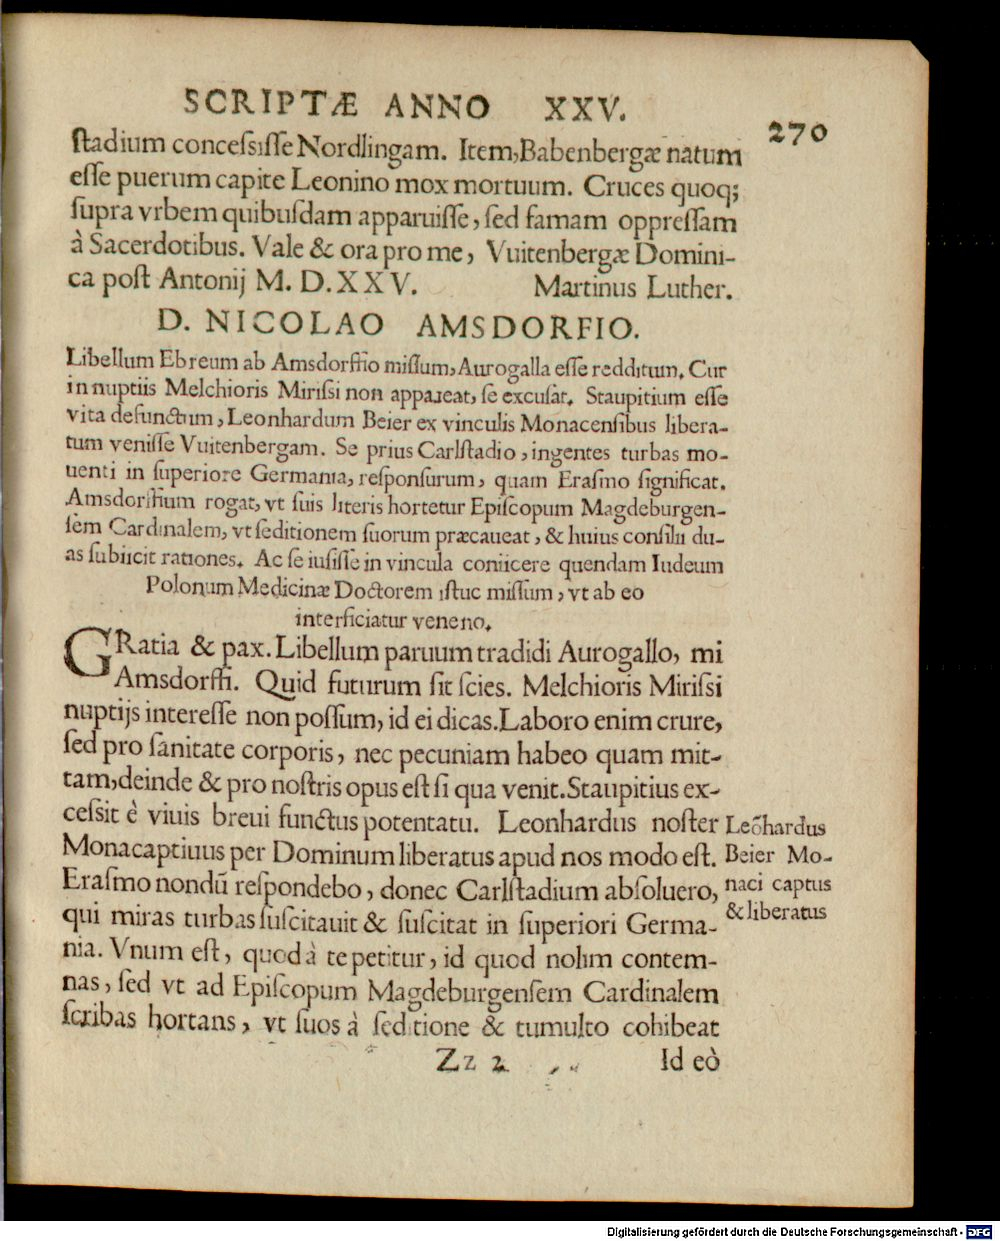 SCRIPTÆ ANNO XXV.
270
stadium concessisse Nordlingam. Item, Babenbergæ natum
esse puerum capite Leonino mox mortuum. Cruces quoq;
supra vrbem quibusdam apparuisse, sed famam oppressam
à Sacerdotibus. Vale & ora pro me, Vuitenbergæ Domini-
ca post Antonij M. D. XXV. Martinus Luther.
D. NICOLAO AMSDORFIO.
Libellum Ebreum ab Amsdorffio missum, Aurogalla esse redditum. Cur
in nuptiis Melchioris Mirissi non appareat, se excusat. Staupitium esse
vita defunctum, Leonhardum Beier ex vinculis Monacensibus libera-
tum venisse Vuitenbergam. Se prius Carlstadio, ingentes turbas mo-
uenti in superiore Germania, responsurum, quam Erasmo significat.
Amsdorffium rogat, vt suis literis hortetur Episcopum Magdeburgen-
sem Cardinalem, vt seditionem suorum præcaueat, & huius consilii du-
as subiicit rationes. Ac se iusisse in vincula coniicere quendam Iudeum
Polonum Medicinæ Doctorem istuc missum, vt ab eo
interficiatur veneno.
GRatia & pax. Libellum paruum tradidi Aurogallo, mi
Amsdorffi. Quid futurum sit scies. Melchioris Mirissi
nuptijs interesse non possum, id ei dicas. Laboro enim crure,
sed pro sanitate corporis, nec pecuniam habeo quam mit-
tam, deinde & pro nostris opus est si qua venit. Staupitius ex-
cessit è viuis breui functus potentatu. Leonhardus noster
Monacaptiuus per Dominum liberatus apud nos modo est.
Erasmo nondū respondebo, donec Carlstadium absoluero,
qui miras turbas suscitauit & suscitat in superiori Germa-
nia. Vnum est, quod à te petitur, id quod nolim contem-
nas, sed vt ad Episcopum Magdeburgensem Cardinalem
scribas hortans, vt suos à seditione & tumulto cohibeat
Leōhardus
Beier Mo-
naci captus
& liberatus
Zz 2 Id eò
Digitalisierung gefördert durch die Deutsche Forschungsgemeinschaft - DFG